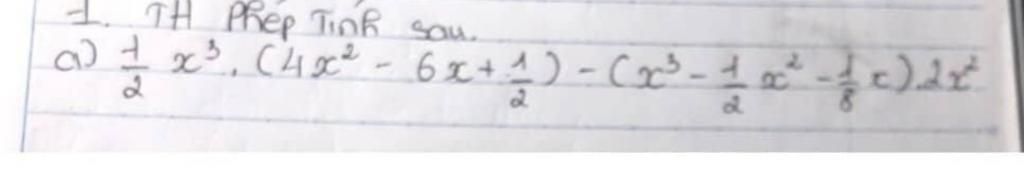 1. TH Phép Tính sau.
a) 1/2 x³. (4x² - 6x + 1/2) - (x³ - 1/2 x² - 1/8 x).2x²